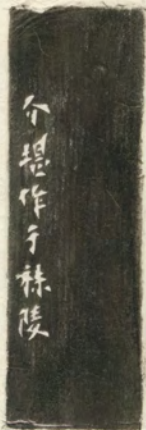 介堪作于秣陵